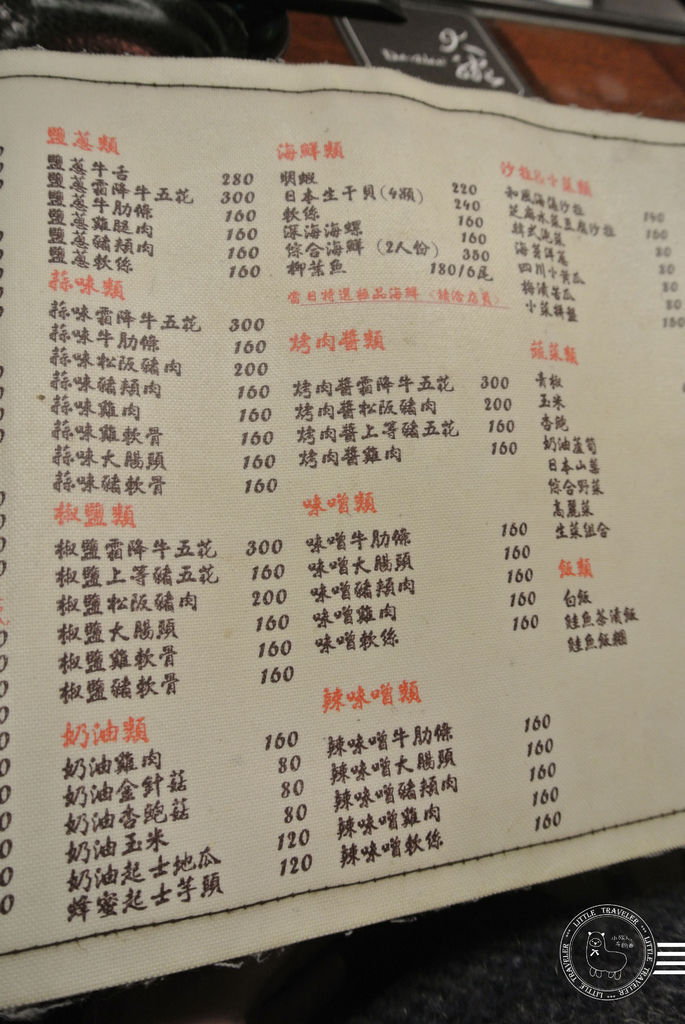 鹽蔥類
鹽蔥牛舌 280
鹽蔥霜降牛五花 300
鹽蔥牛肋條 160
鹽蔥雞腿肉 160
鹽蔥豬頰肉 160
鹽蔥軟絲 160
蒜味類
蒜味霜降牛五花 300
蒜味牛肋條 160
蒜味松阪豬肉 200
蒜味豬頰肉 160
蒜味雞肉 160
蒜味雞軟骨 160
蒜味大腸頭 160
蒜味豬軟骨 160
椒鹽類
椒鹽霜降牛五花 300
椒鹽上等豬五花 160
椒鹽松阪豬肉 200
椒鹽大腸頭 160
椒鹽雞軟骨 160
椒鹽豬軟骨 160
奶油類
奶油雞肉 160
奶油金針菇 80
奶油杏鮑菇 80
奶油玉米 80
奶油起士地瓜 120
蜂蜜起士芋頭 120
海鮮類
明蝦 220
日本生干貝(4顆) 240
軟絲 160
深海海螺 160
綜合海鮮(2人份) 350
柳葉魚 180/6尾
當日特選極品海鮮(請洽店員)
烤肉醬類
烤肉醬霜降牛五花 300
烤肉醬松阪豬肉 200
烤肉醬上等豬五花 160
烤肉醬雞肉 160
味噌類
味噌牛肋條 160
味噌大腸頭 160
味噌豬頰肉 160
味噌雞肉 160
味噌軟絲 160
辣味噌類
辣味噌牛肋條 160
辣味噌大腸頭 160
辣味噌豬頰肉 160
辣味噌雞肉 160
辣味噌軟絲 160
沙拉&小菜類
和風海藻沙拉
芝麻水菜豆腐沙拉
韓式泡菜 80
海苔洋蔥 80
四川小黃瓜 80
梅漬苦瓜 80
小菜拼盤 150
蔬菜類
青椒
玉米
杏鮑
奶油蘆筍
日本山藥
綜合野菜
高麗菜
生菜組合
飯類
白飯
鮭魚茶漬飯
鮭魚飯糰
LITTLE TRAVELER
LITTLE TRAVELER
LITTLE TRAVELER